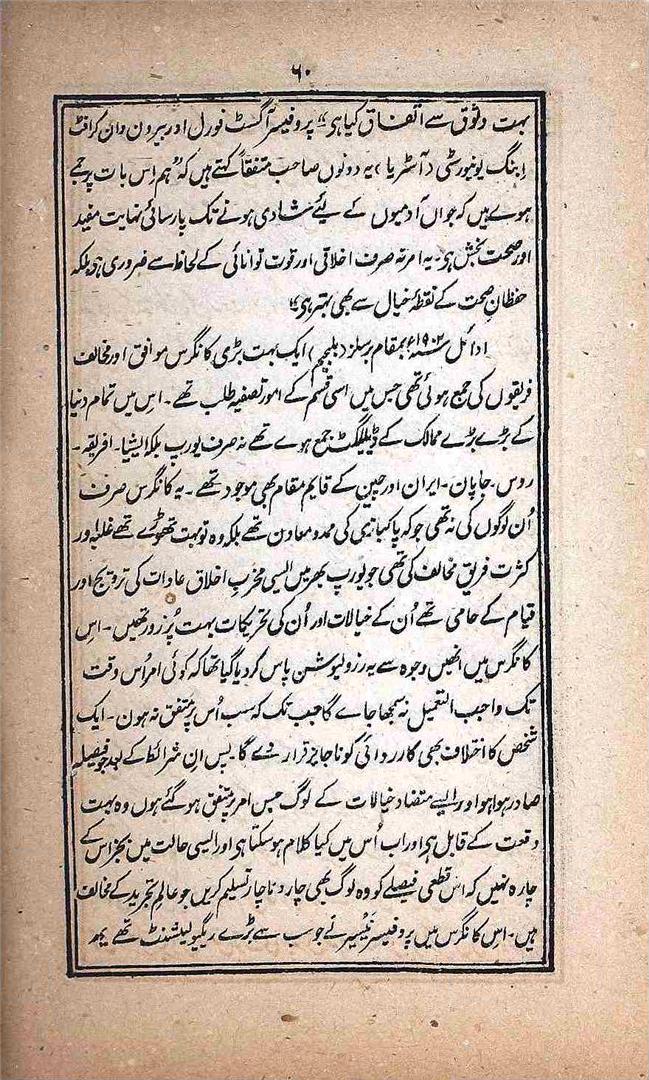 ۶۰
بہت وثوق سے اتفاق کیا ہی‘‘ پروفیسر آگسٹ فورل اور بیرون وان کرافٹ
ابنگ یونیورسٹی (آسٹریا) یہ دونوں صاحب متفقاً کہتے ہیں کہ ’’ہم اس بات پر جمے
ہوے ہیں کہ جوان آدمیوں کے لیئے شادی ہونے تک پارسائی نہایت مفید
اور صحت بخش ہی۔ یہ امر نہ صرف اخلاقی اور قوت توانائی کے لحاظ سے ضروری ہی بلکہ
حفظانِ صحت کے نقطۂ خیال سے بھی بہتر ہی‘‘
اوائل سنہ ۱۹۰۲ء بمقام برسلز (بلجیم) ایک بہت بڑی کانگرس موافق اور مخالف
فریقوں کی جمع ہوئی تھی جس میں اسی قسم کے امور تصفیہ طلب تھے۔ اس میں تمام دنیا
کے بڑے بڑے ممالک کے ڈیلیگیٹ جمع ہوے تھے نہ صرف یورپ بلکہ ایشیا۔ افریقہ۔
روس۔ جاپان۔ ایران اور چین کے قایم مقام بھی موجود تھے۔ یہ کانگرس صرف
اُن لوگوں کی نہ تھی جو کہ پاکبازی کی ممد و معاون تھے بلکہ وہ تو بہت تھوڑے تھے غلبہ اور
کثرت فریق مخالف کی تھی جو یورپ بھر میں ایسی مخربِ اخلاق عادات کی ترویج اور
قیام کے حامی تھے اُن کے خیالات اور اُن کی تحریکات بہت پُر زور تھیں۔ اس
کانگرس میں انھیں وجوہ سے یہ رزولیوشن پاس کر دیا گیا تھا کہ کوئی امر اُس وقت
تک واجب التعمیل نہ سمجھا جاے گا جب تک کہ سب اُس پر متفق نہ ہون۔ ایک
شخص کا اختلاف بھی کارروائی کو ناجایز قرار دے گا۔ پس ان شرائط کے بعد جو فیصلہ
صادر ہوا ہو اور ایسے متضاد خیالات کے لوگ جس امر پر متفق ہو گئے ہوں وہ بہت
وقعت کے قابل ہی اور اب اُس میں کیا کلام ہو سکتا ہی اور ایسی حالت میں بجز اس کے
چارہ نہیں کہ اس قطعی فیصلے کو وہ لوگ بھی چار و ناچار تسلیم کریں جو عالمِ تجرید کے مخالف
ہیں۔ اس کانگرس میں پروفیسر نَیسر نے جو سب سے بڑے ریگیولیشنٹ تھے یہ